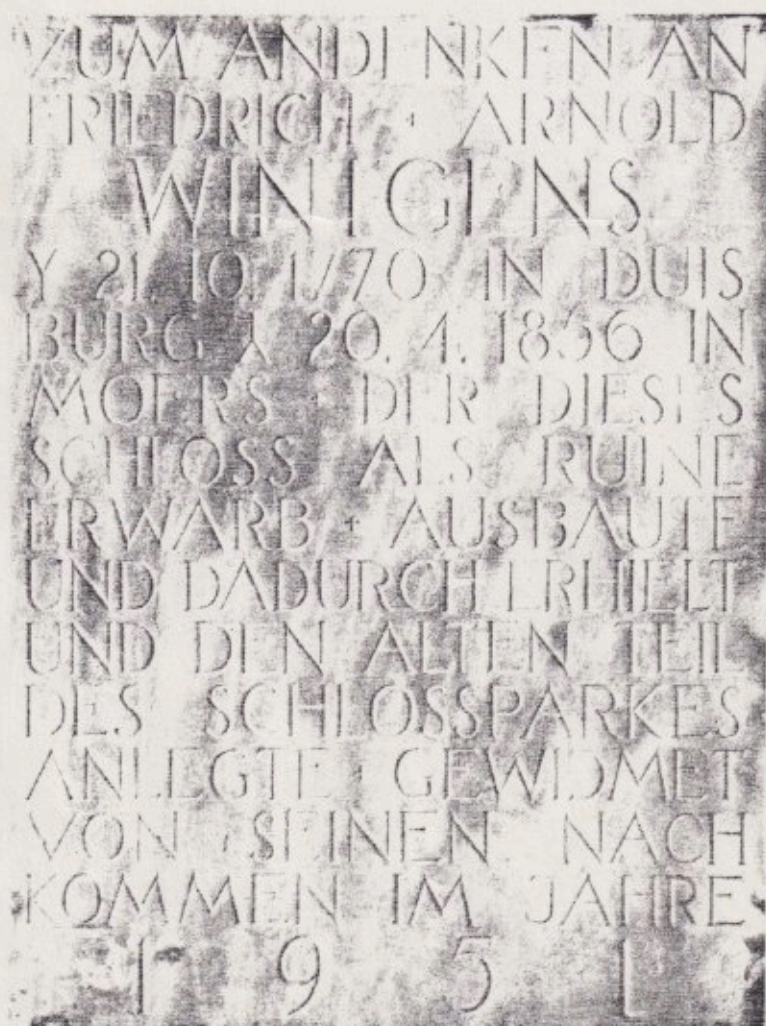 ZUM ANDENKEN AN
FRIEDRICH · ARNOLD
WINTGENS
Y 21. 10. 1770 IN DUIS
BURG ⅄ 20. 4. 1856 IN
MOERS · DER DIESES
SCHLOSS ALS RUINE
ERWARB · AUSBAUTE
UND DADURCH ERHIELT
UND DEN ALTEN TEIL
DES SCHLOSSPARKES
ANLEGTE · GEWIDMET
VON SEINEN NACH
KOMMEN IM JAHRE
1951